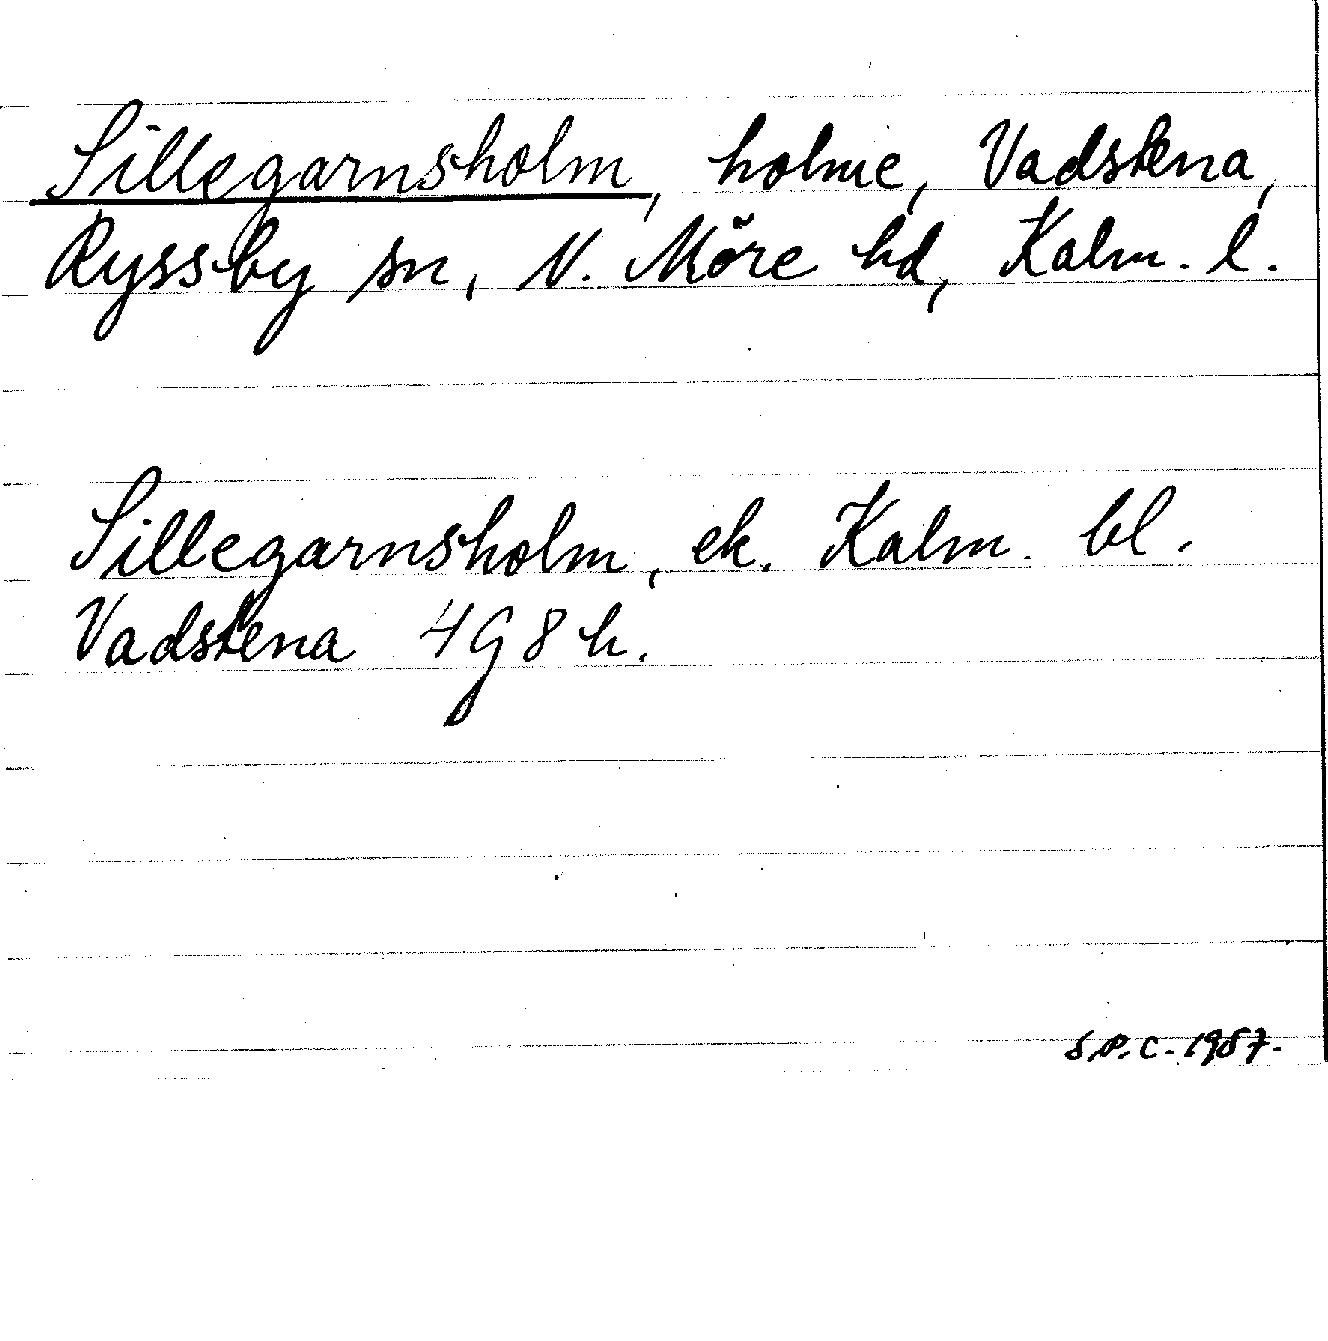 Sillegarnsholm, holme, Vadstena,
Ryssby sn, N. Möre hd, Kalm. l.
Sillegarnsholm, ek. Kalm. bl.
Vadstena 4 G 8 h.
S.P.C. 1957.